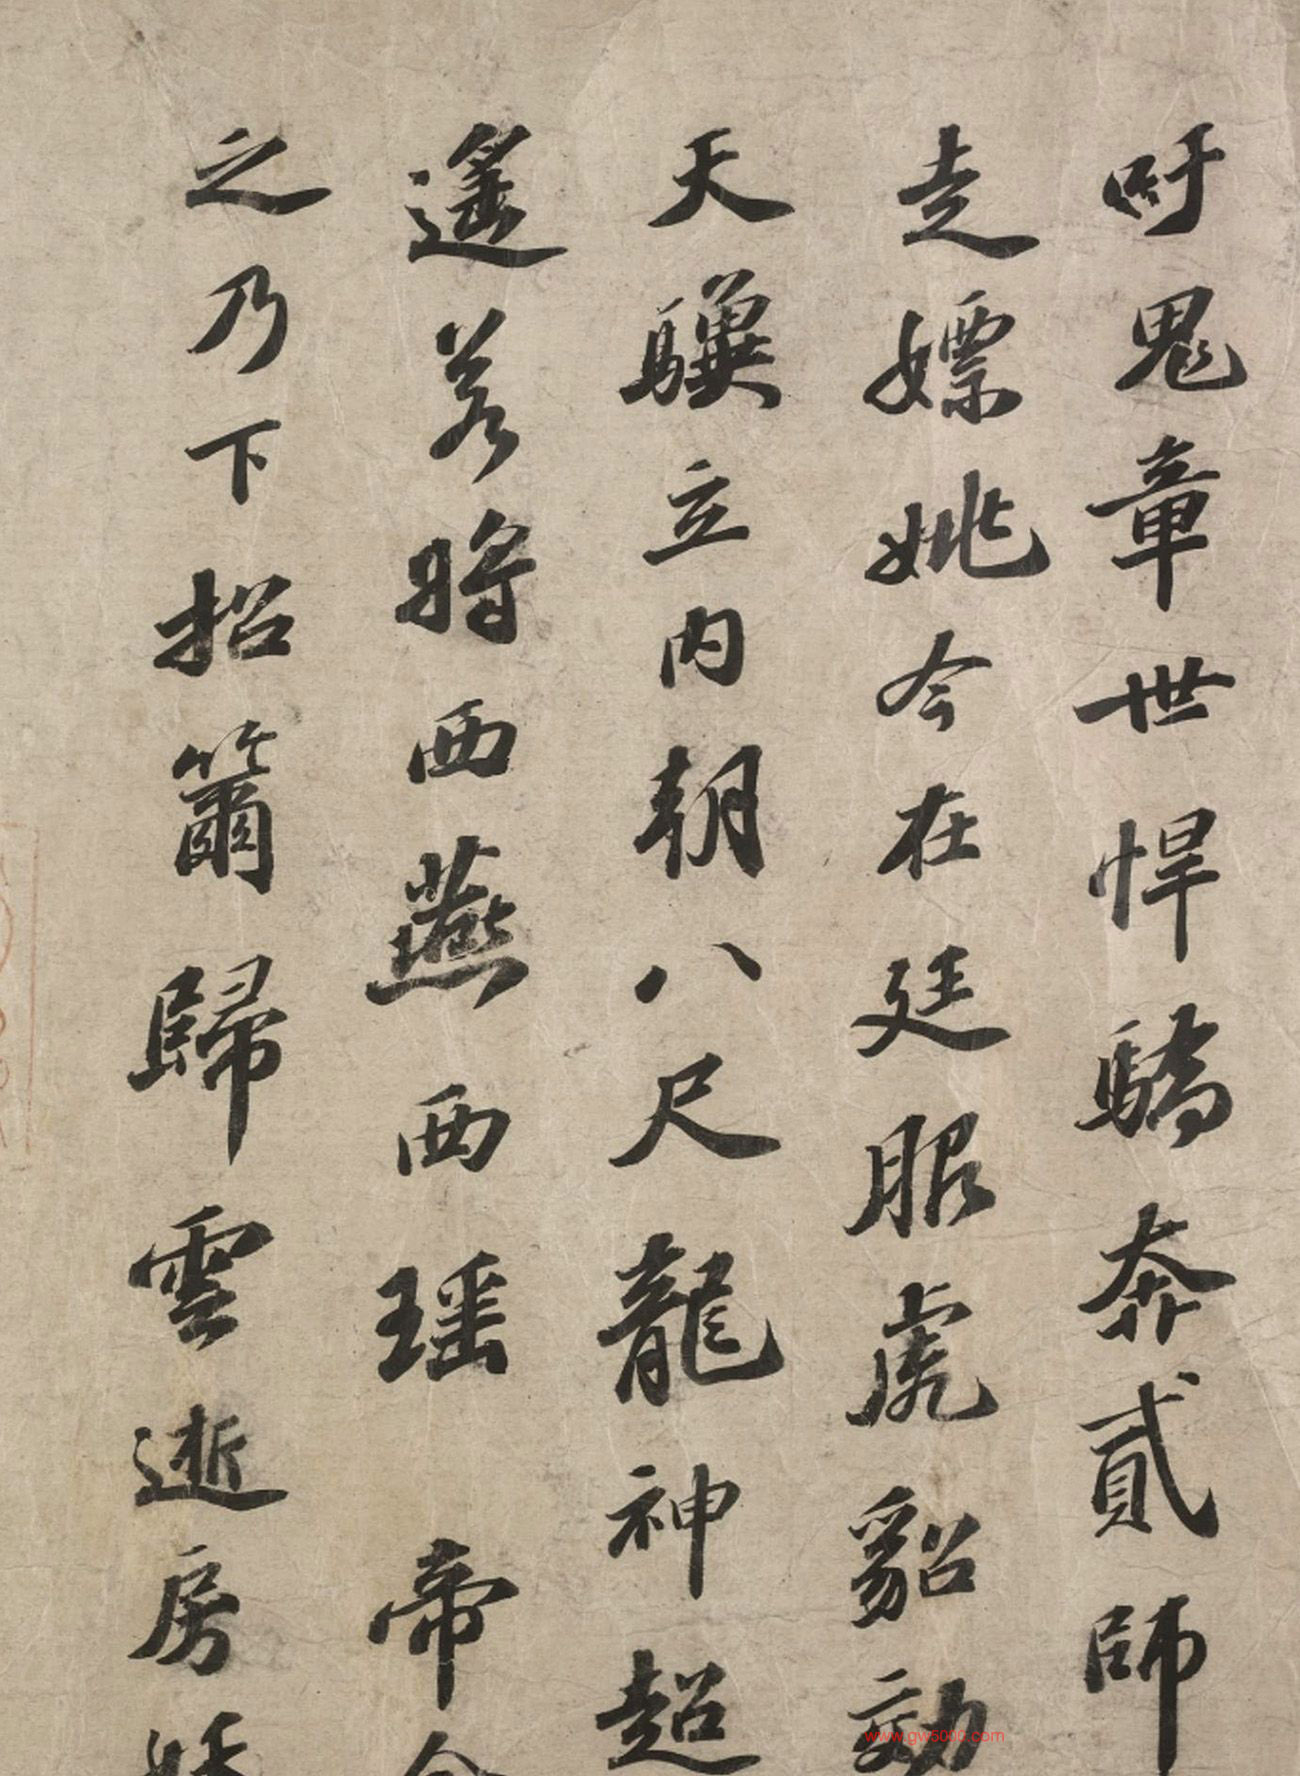 吁鬼章世悍驕奔貳師
走嫖姚今在廷服虎貂効
天驥立内朝八尺龍神超
遥若将西燕西瑶帝
之乃下招籋歸雲逝房妖
www.gw5000.com